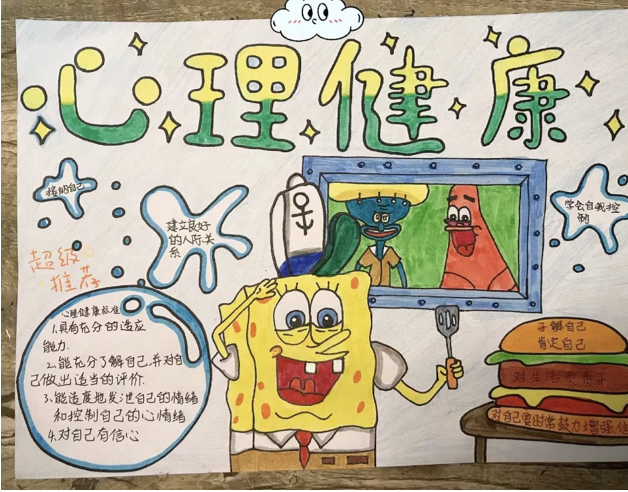 心理健康
接纳自己
建立良好
的人际关
系
学会自我控
制
超级
推荐
心理健康标准
1.具有充分的适应
能力.
2.能充分了解自己.并对自
己做出适当的评价.
3.能适度地发泄自己的情绪
和控制自己的心情绪
4.对自己有信心
了解自己
肯定自己
对生活负责任
对自己要时常鼓力增强信